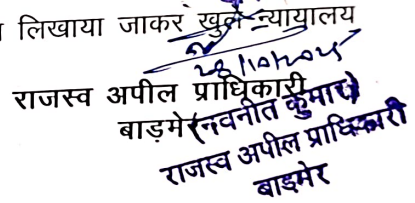 लिखाया जाकर खुले न्यायालय
28/10/2025
राजस्व अपील प्राधिकारी
बाड़मेर
(नवनीत कुमार)
राजस्व अपील प्राधिकारी
बाड़मेर